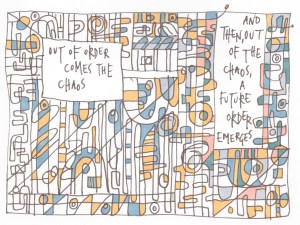 OUT OF ORDER
COMES THE
CHAOS
AND
THEN, OUT
OF THE
CHAOS,
A
FUTURE
ORDER
EMERGES